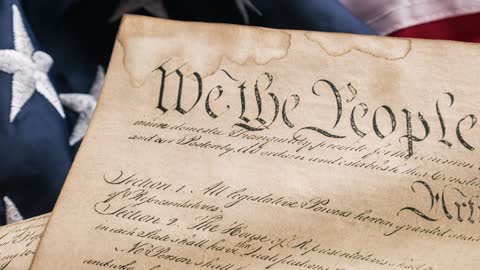 We the People
insure domestic Tranquility, provide for the common
and our Posterity, do ordain and establish this Constit
Arti
Section 1. All legislative Powers herein granted shall
of Representatives.
Section 2. The House of Representatives shall
in each State shall have the Qualifications
No Person shall